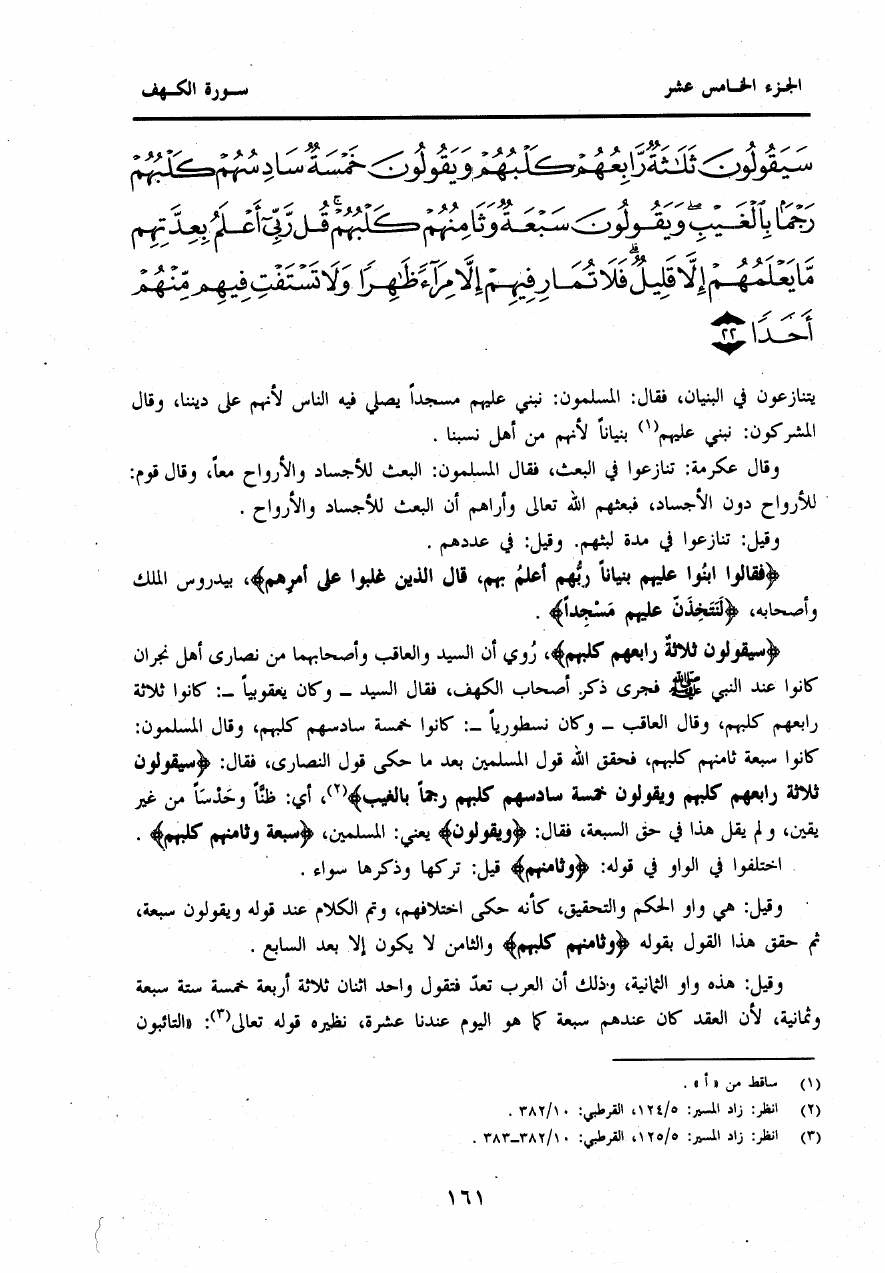 الجزء الخامس عشر
سورة الكهف
سَيَقُولُونَ ثَلَٰثَةٌ رَّابِعُهُمْ كَلْبُهُمْ وَيَقُولُونَ خَمْسَةٌ سَادِسُهُمْ كَلْبُهُمْ
رَجْمًۢا بِٱلْغَيْبِ ۖ وَيَقُولُونَ سَبْعَةٌ وَثَامِنُهُمْ كَلْبُهُمْ ۚ قُل رَّبِّىٓ أَعْلَمُ بِعِدَّتِهِم
مَّا يَعْلَمُهُمْ إِلَّا قَلِيلٌ ۗ فَلَا تُمَارِ فِيهِمْ إِلَّا مِرَآءً ظَٰهِرًا وَلَا تَسْتَفْتِ فِيهِم مِّنْهُمْ
أَحَدًا ٢٢
يتنازعون في البنيان، فقال: المسلمون: نبني عليهم مسجداً يصلي فيه الناس لأنهم على ديننا، وقال
المشركون: نبني عليهم(١) بنياناً لأنهم من أهل نسبنا .
وقال عكرمة: تنازعوا في البعث، فقال المسلمون: البعث للأجساد والأرواح معاً، وقال قوم:
للأرواح دون الأجساد، فبعثهم الله تعالى وأراهم أن البعث للأجساد والأرواح .
وقيل: تنازعوا في مدة لبثهم. وقيل: في عددهم .
﴿فقالوا ابنُوا عليهم بنياناً ربُّهم أعلمُ بهم، قال الذين غلبوا على أمرِهم﴾، بيدروس الملك
وأصحابه، ﴿لَنَتَّخِذَنّ عليهم مَسْجداً﴾ .
﴿سيقولون ثلاثةٌ رابعهم كلبهم﴾، رُوي أن السيد والعاقب وأصحابهما من نصارى أهل نجران
كانوا عند النبي ﷺ فجرى ذكر أصحاب الكهف، فقال السيد ــ وكان يعقوبياً ــ: كانوا ثلاثة
رابعهم كلبهم، وقال العاقب ــ وكان نسطورياً ــ: كانوا خمسة سادسهم كلبهم، وقال المسلمون:
كانوا سبعة ثامنهم كلبهم، فحقق الله قول المسلمين بعد ما حكى قول النصارى، فقال: ﴿سيقولون
ثلاثة رابعهم كلبهم ويقولون خمسة سادسهم كلبهم رجماً بالغيب﴾(٢)، أي: ظنّاً وحَدْساً من غير
يقين، ولم يقل هذا في حق السبعة، فقال: ﴿ويقولون﴾ يعني: المسلمين، ﴿سبعة وثامنهم كلبهم﴾ .
اختلفوا في الواو في قوله: ﴿وثامنهم﴾ قيل: تركها وذكرها سواء .
وقيل: هي واو الحكم والتحقيق، كأنه حكى اختلافهم، وتم الكلام عند قوله ويقولون سبعة،
ثم حقق هذا القول بقوله ﴿وثامنهم كلبهم﴾ والثامن لا يكون إلا بعد السابع .
وقيل: هذه واو الثمانية، وذلك أن العرب تعدّ فتقول واحد اثنان ثلاثة أربعة خمسة ستة سبعة
وثمانية، لأن العقد كان عندهم سبعة كما هو اليوم عندنا عشرة، نظيره قوله تعالى(٣): «التائبون
(١) ساقط من «أ» .
(٢) انظر: زاد المسير: ١٢٤/٥، القرطبي: ٣٨٢/١٠ .
(٣) انظر: زاد المسير: ١٢٥/٥، القرطبي: ٣٨٢/١٠ــ٣٨٣ .
١٦١